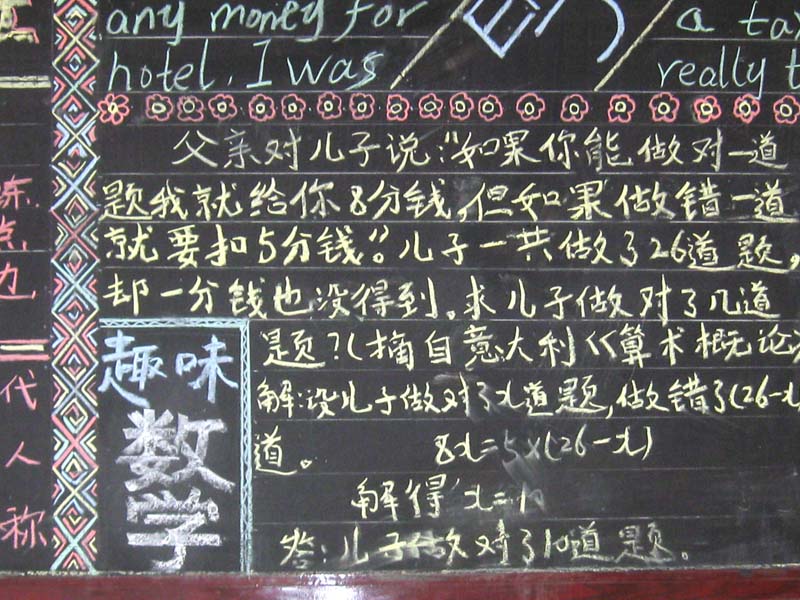 any money for
hotel. I was
a tax
really t
父亲对儿子说:"如果你能做对一道
题我就给你8分钱,但如果做错一道
就要扣5分钱"。儿子一共做了26道题,
却一分钱也没得到。求儿子做对了几道
题?(摘自意大利《算术概论
解:设儿子做对了x道题,做错了(26-x
道。 8x=5×(26-x)
解得 x=1
答:儿子做对了10道题。
趣味
数学
代
人
称